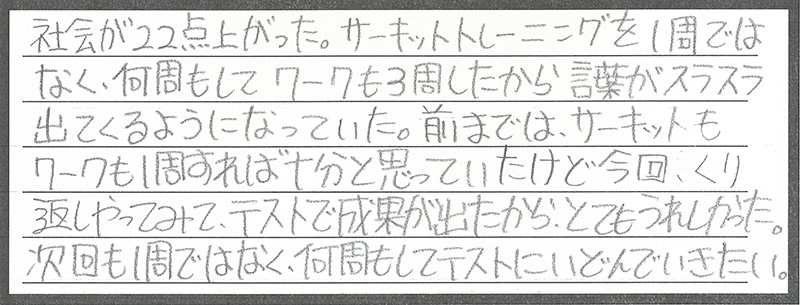 社会が22点上がった。サーキットトレーニングを1周では
なく、何周もして ワークも3周したから 言葉がスラスラ
出てくるようになっていた。前までは、サーキットも
ワークも1周すれば十分と思っていたけど今回、くり
返しやってみて、テストで成果が出たから、とてもうれしかった。
次回も1周ではなく、何周もしてテストにいどんでいきたい。